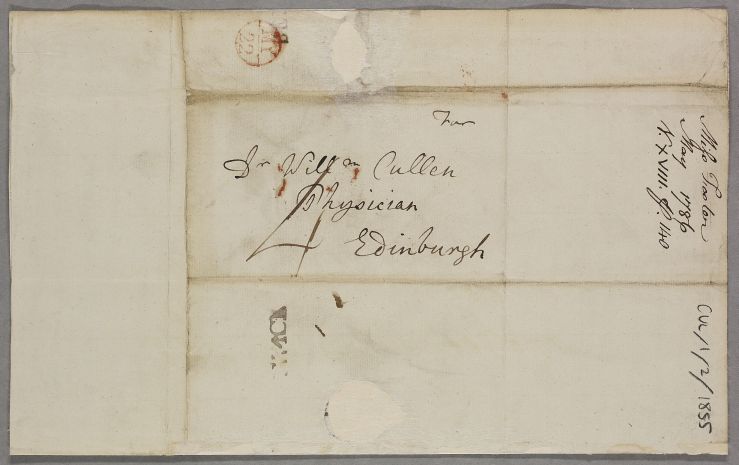 For
Dr Willm Cullen
Physician
Edinburgh
4
MY
22
Miss
May 1786
V. XVIII. p. 140
CUL/1/2/1855